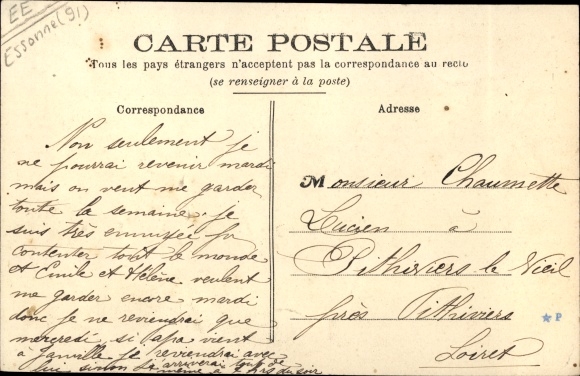 EE
Essonne (91)
CARTE POSTALE
Tous les pays étrangers n'acceptent pas la correspondance au recto
(se renseigner à la poste)
Correspondance
Non seulement je
ne pourrai revenir mardi
mais on veut me garder
toute la semaine. je
suis très ennuyée
contenter tout le monde
et Emile et Hélène veulent
me garder encore mardi
donc je ne reviendrai que
mercredi, si papa vient
à Janville je reviendrai avec
lui, sinon j'arriverai tout de
même à du soir
Adresse
Monsieur Chaumette
Lucien à
Pithiviers le Vieil
près Pithiviers
Loiret
P